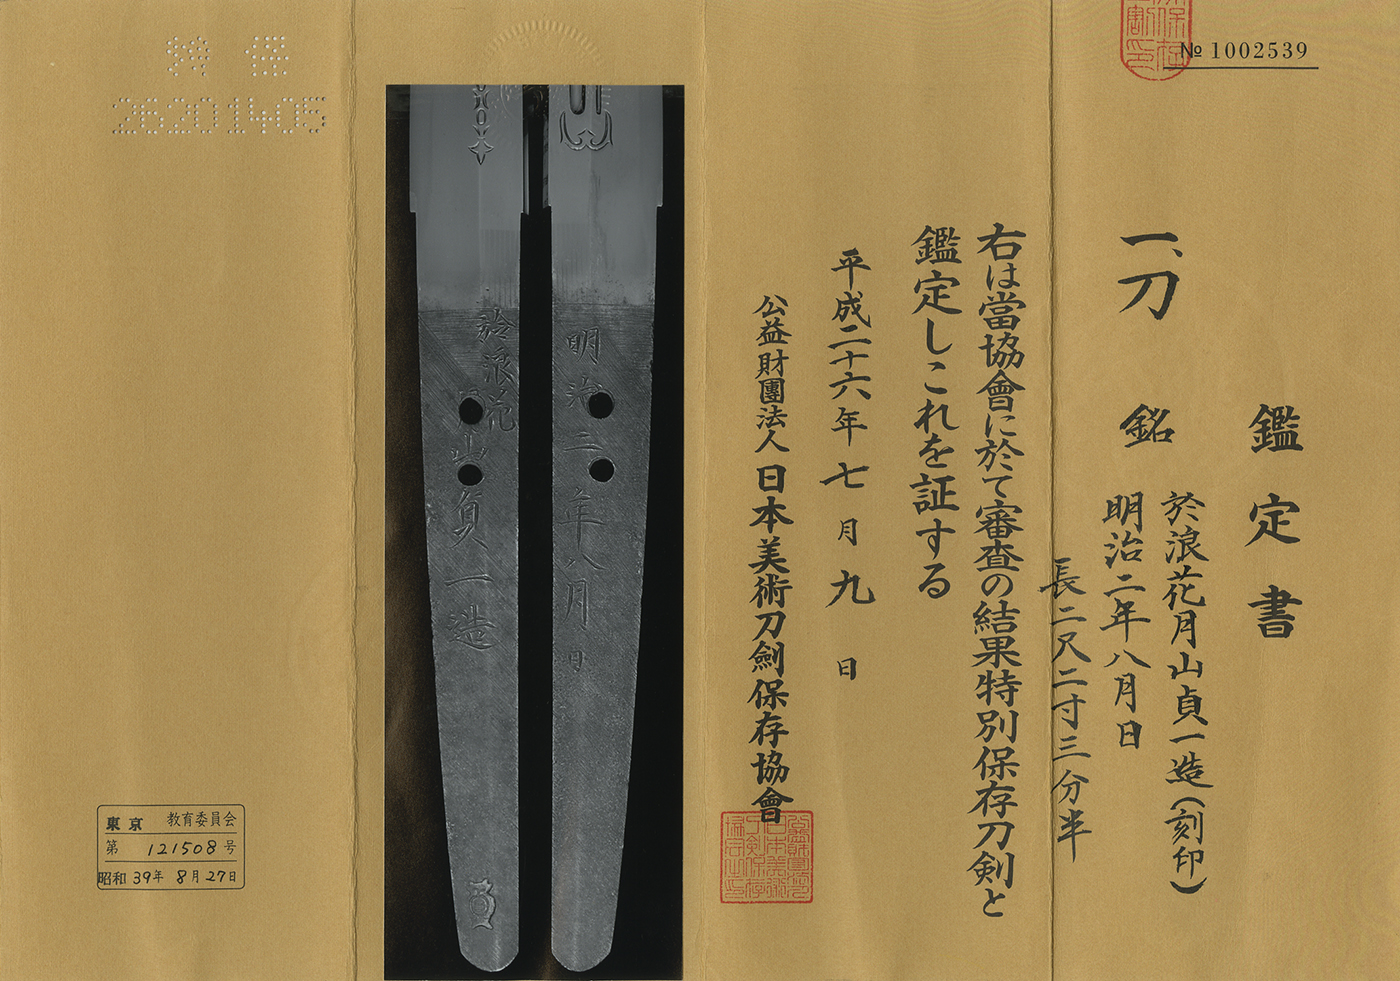 № 1002539
鑑定書
一、刀
銘
於浪花月山貞一造(刻印)
明治二年八月日
長二尺二寸三分半
右は當協會に於て審査の結果特別保存刀剣と
鑑定しこれを証する
平成二十六年七月九日
公益財團法人日本美術刀劍保存協會
明治二年八月日
於浪花
月山貞一造
特保
26201405
東京教育委員会
第121508号
昭和39年8月27日